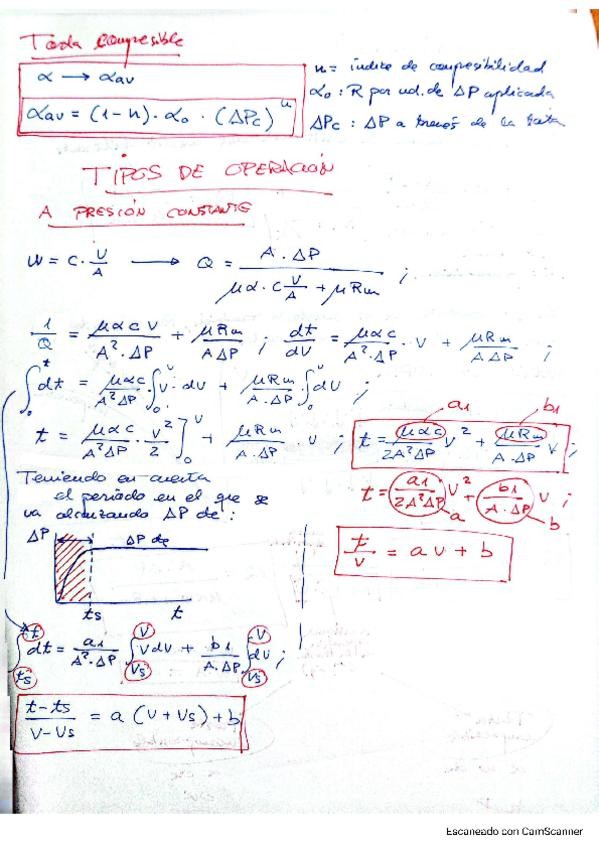 Torta compresible
α → αav
αav = (1-n) · α0 · (ΔPc)^n
n = índice de compresibilidad
α0 : R por ud. de ΔP aplicada
ΔPc : ΔP a través de la torta
TIPOS DE OPERACIÓN
A PRESIÓN CONSTANTE
W = C · V/A → Q = A · ΔP / (μα · C V/A + μRm) ;
1/Q = μαcV / (A² · ΔP) + μRm / (AΔP) ; dt/dV = μαc / (A² · ΔP) · V + μRm / (AΔP) ;
∫₀ᵗ dt = μαc / (A²ΔP) ∫₀ᵛ V · dV + μRm / (A·ΔP) ∫₀ᵛ dV ;
t = μαc / (A²ΔP) · V²/2 ]₀ᵛ + μRm / (A·ΔP) · V ; t = μαc / (2A²ΔP) V² + μRm / (A·ΔP) V ;
a1 b1
t = a1 / (2A²ΔP) V² + b1 / (A·ΔP) V ;
a b
t/V = aV + b
Teniendo en cuenta
el periodo en el que se
va alcanzando ΔP de :
ΔP ΔP de
ts t
∫ts^t dt = a1 / (A²·ΔP) ∫Vs^V V dV + b1 / (A·ΔP) ∫Vs^V dV ;
(t-ts) / (V-Vs) = a (V+Vs) + b
Escaneado con CamScanner